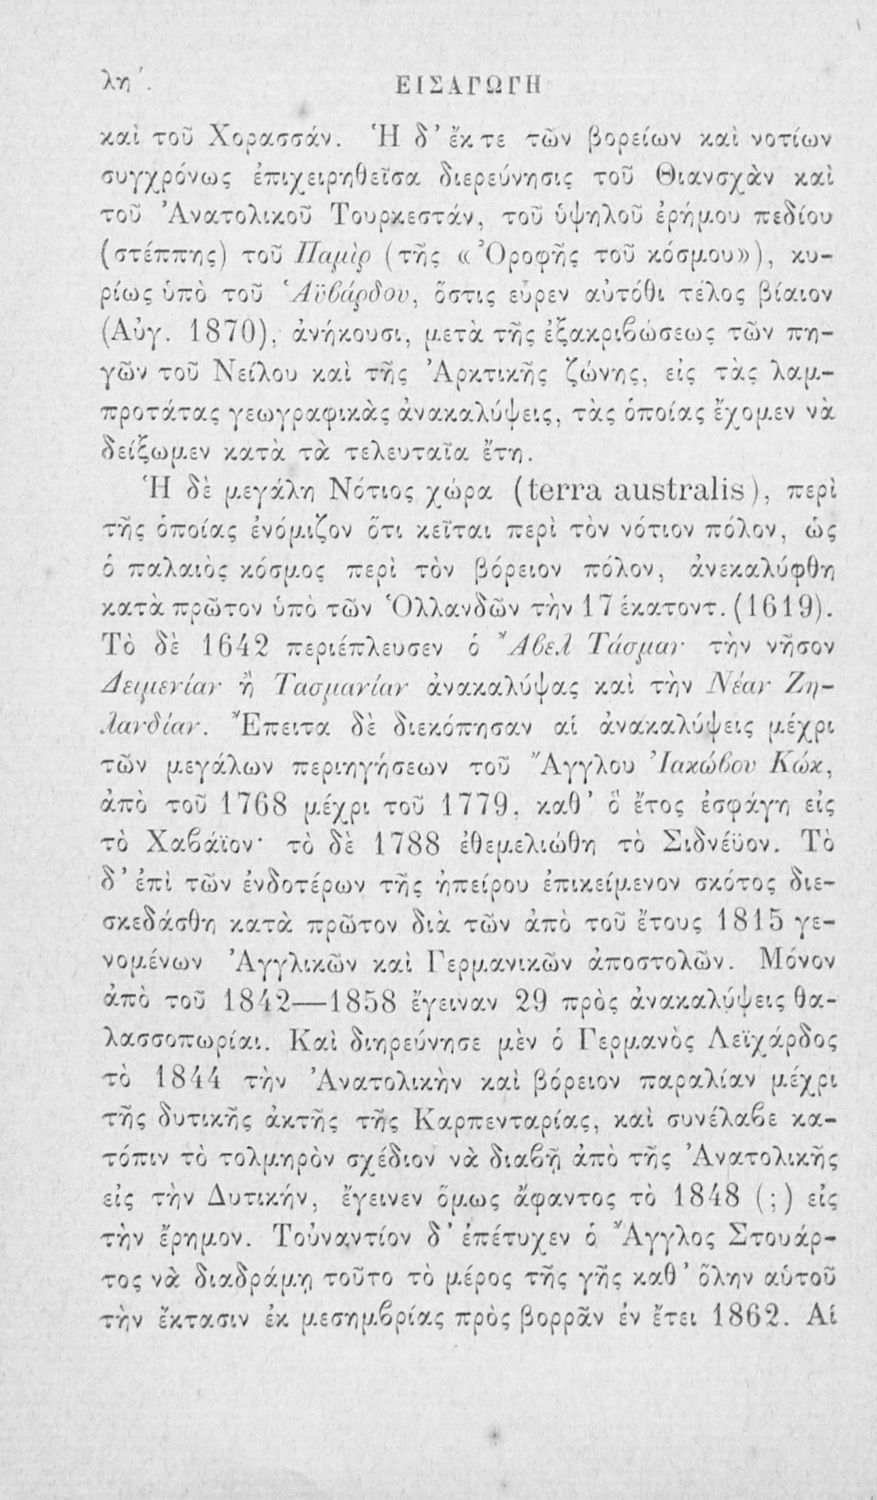 λη΄.
ΕΙΣΑΓΩΓΗ
καὶ τοῦ Χορασσάν. Ἡ δ’ ἔκ τε τῶν βορείων καὶ νοτίων
συγχρόνως ἐπιχειρηθεῖσα διερεύνησις τοῦ Θιανσχὰν καὶ
τοῦ Ἀνατολικοῦ Τουρκεστάν, τοῦ ὑψηλοῦ ἐρήμου πεδίου
(στέππης) τοῦ Παμὶρ (τῆς «Ὀροφῆς τοῦ κόσμου»), κυ-
ρίως ὑπὸ τοῦ Ἁϋβάρδου, ὅστις εὗρεν αὐτόθι τέλος βίαιον
(Αὐγ. 1870), ἀνήκουσι, μετὰ τῆς ἐξακριβώσεως τῶν πη-
γῶν τοῦ Νείλου καὶ τῆς Ἀρκτικῆς ζώνης, εἰς τὰς λαμ-
προτάτας γεωγραφικὰς ἀνακαλύψεις, τὰς ὁποίας ἔχομεν νὰ
δείξωμεν κατὰ τὰ τελευταῖα ἔτη.
Ἡ δὲ μεγάλη Νότιος χώρα (terra australis), περὶ
τῆς ὁποίας ἐνόμιζον ὅτι κεῖται περὶ τὸν νότιον πόλον, ὡς
ὁ παλαιὸς κόσμος περὶ τὸν βόρειον πόλον, ἀνεκαλύφθη
κατὰ πρῶτον ὑπὸ τῶν Ὁλλανδῶν τὴν 17 ἑκατοντ. (1619).
Τὸ δὲ 1642 περιέπλευσεν ὁ Ἄβελ Τάσμαν τὴν νῆσον
Δειμενίαν ἢ Τασμανίαν ἀνακαλύψας καὶ τὴν Νέαν Ζη-
λανδίαν. Ἔπειτα δὲ διεκόπησαν αἱ ἀνακαλύψεις μέχρι
τῶν μεγάλων περιηγήσεων τοῦ Ἄγγλου Ἰακώβου Κώκ,
ἀπὸ τοῦ 1768 μέχρι τοῦ 1779, καθ’ ὃ ἔτος ἐσφάγη εἰς
τὸ Χαβάϊον· τὸ δὲ 1788 ἐθεμελιώθη τὸ Σιδνέϋον. Τὸ
δ’ ἐπὶ τῶν ἐνδοτέρων τῆς ἠπείρου ἐπικείμενον σκότος διε-
σκεδάσθη κατὰ πρῶτον διὰ τῶν ἀπὸ τοῦ ἔτους 1815 γε-
νομένων Ἀγγλικῶν καὶ Γερμανικῶν ἀποστολῶν. Μόνον
ἀπὸ τοῦ 1842—1858 ἔγειναν 29 πρὸς ἀνακαλύψεις θα-
λασσοπωρίαι. Καὶ διηρεύνησε μὲν ὁ Γερμανὸς Λεϊχάρδος
τὸ 1844 τὴν Ἀνατολικὴν καὶ βόρειον παραλίαν μέχρι
τῆς δυτικῆς ἀκτῆς τῆς Καρπενταρίας, καὶ συνέλαβε κα-
τόπιν τὸ τολμηρὸν σχέδιον νὰ διαβῇ ἀπὸ τῆς Ἀνατολικῆς
εἰς τὴν Δυτικήν, ἔγεινεν ὅμως ἄφαντος τὸ 1848 (;) εἰς
τὴν ἔρημον. Τοὐναντίον δ’ ἐπέτυχεν ὁ Ἄγγλος Στουάρ-
τος νὰ διαδράμῃ τοῦτο τὸ μέρος τῆς γῆς καθ’ ὅλην αὑτοῦ
τὴν ἔκτασιν ἐκ μεσημβρίας πρὸς βορρᾶν ἐν ἔτει 1862. Αἱ